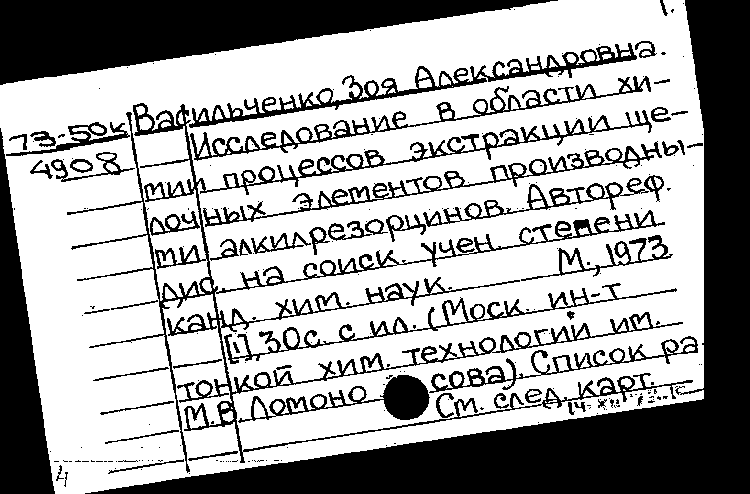 1.
73-50к Васильченко, Зоя Александровна.
4908 Исследование в области хи-
мии процессов экстракции ще-
лочных элементов производны-
ми алкилрезорцинов. Автореф.
дис. на соиск. учен. степени
канд. хим. наук. М., 1973
[1], 30с. с ил. (Моск. ин-т
тонкой хим. технологии им.
М.В. Ломоносова). Список ра
См. след. карт.
4